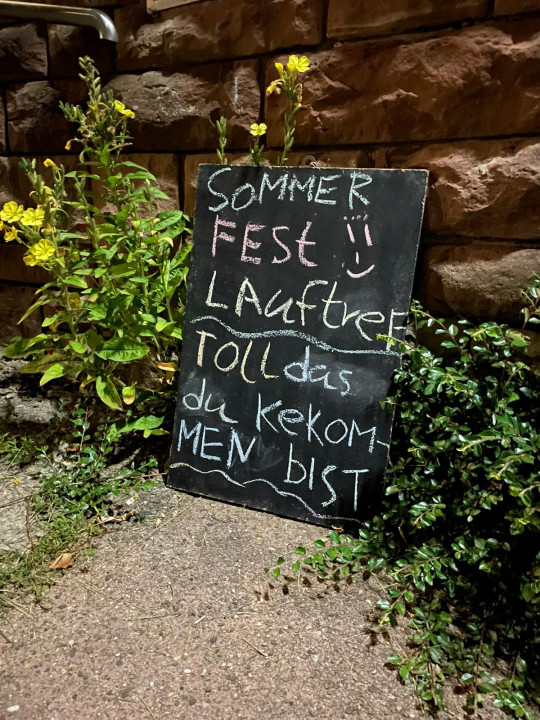 SOMMER
FESt
LAuftreF
TOLL das
du KeKOM-
MEN bIST